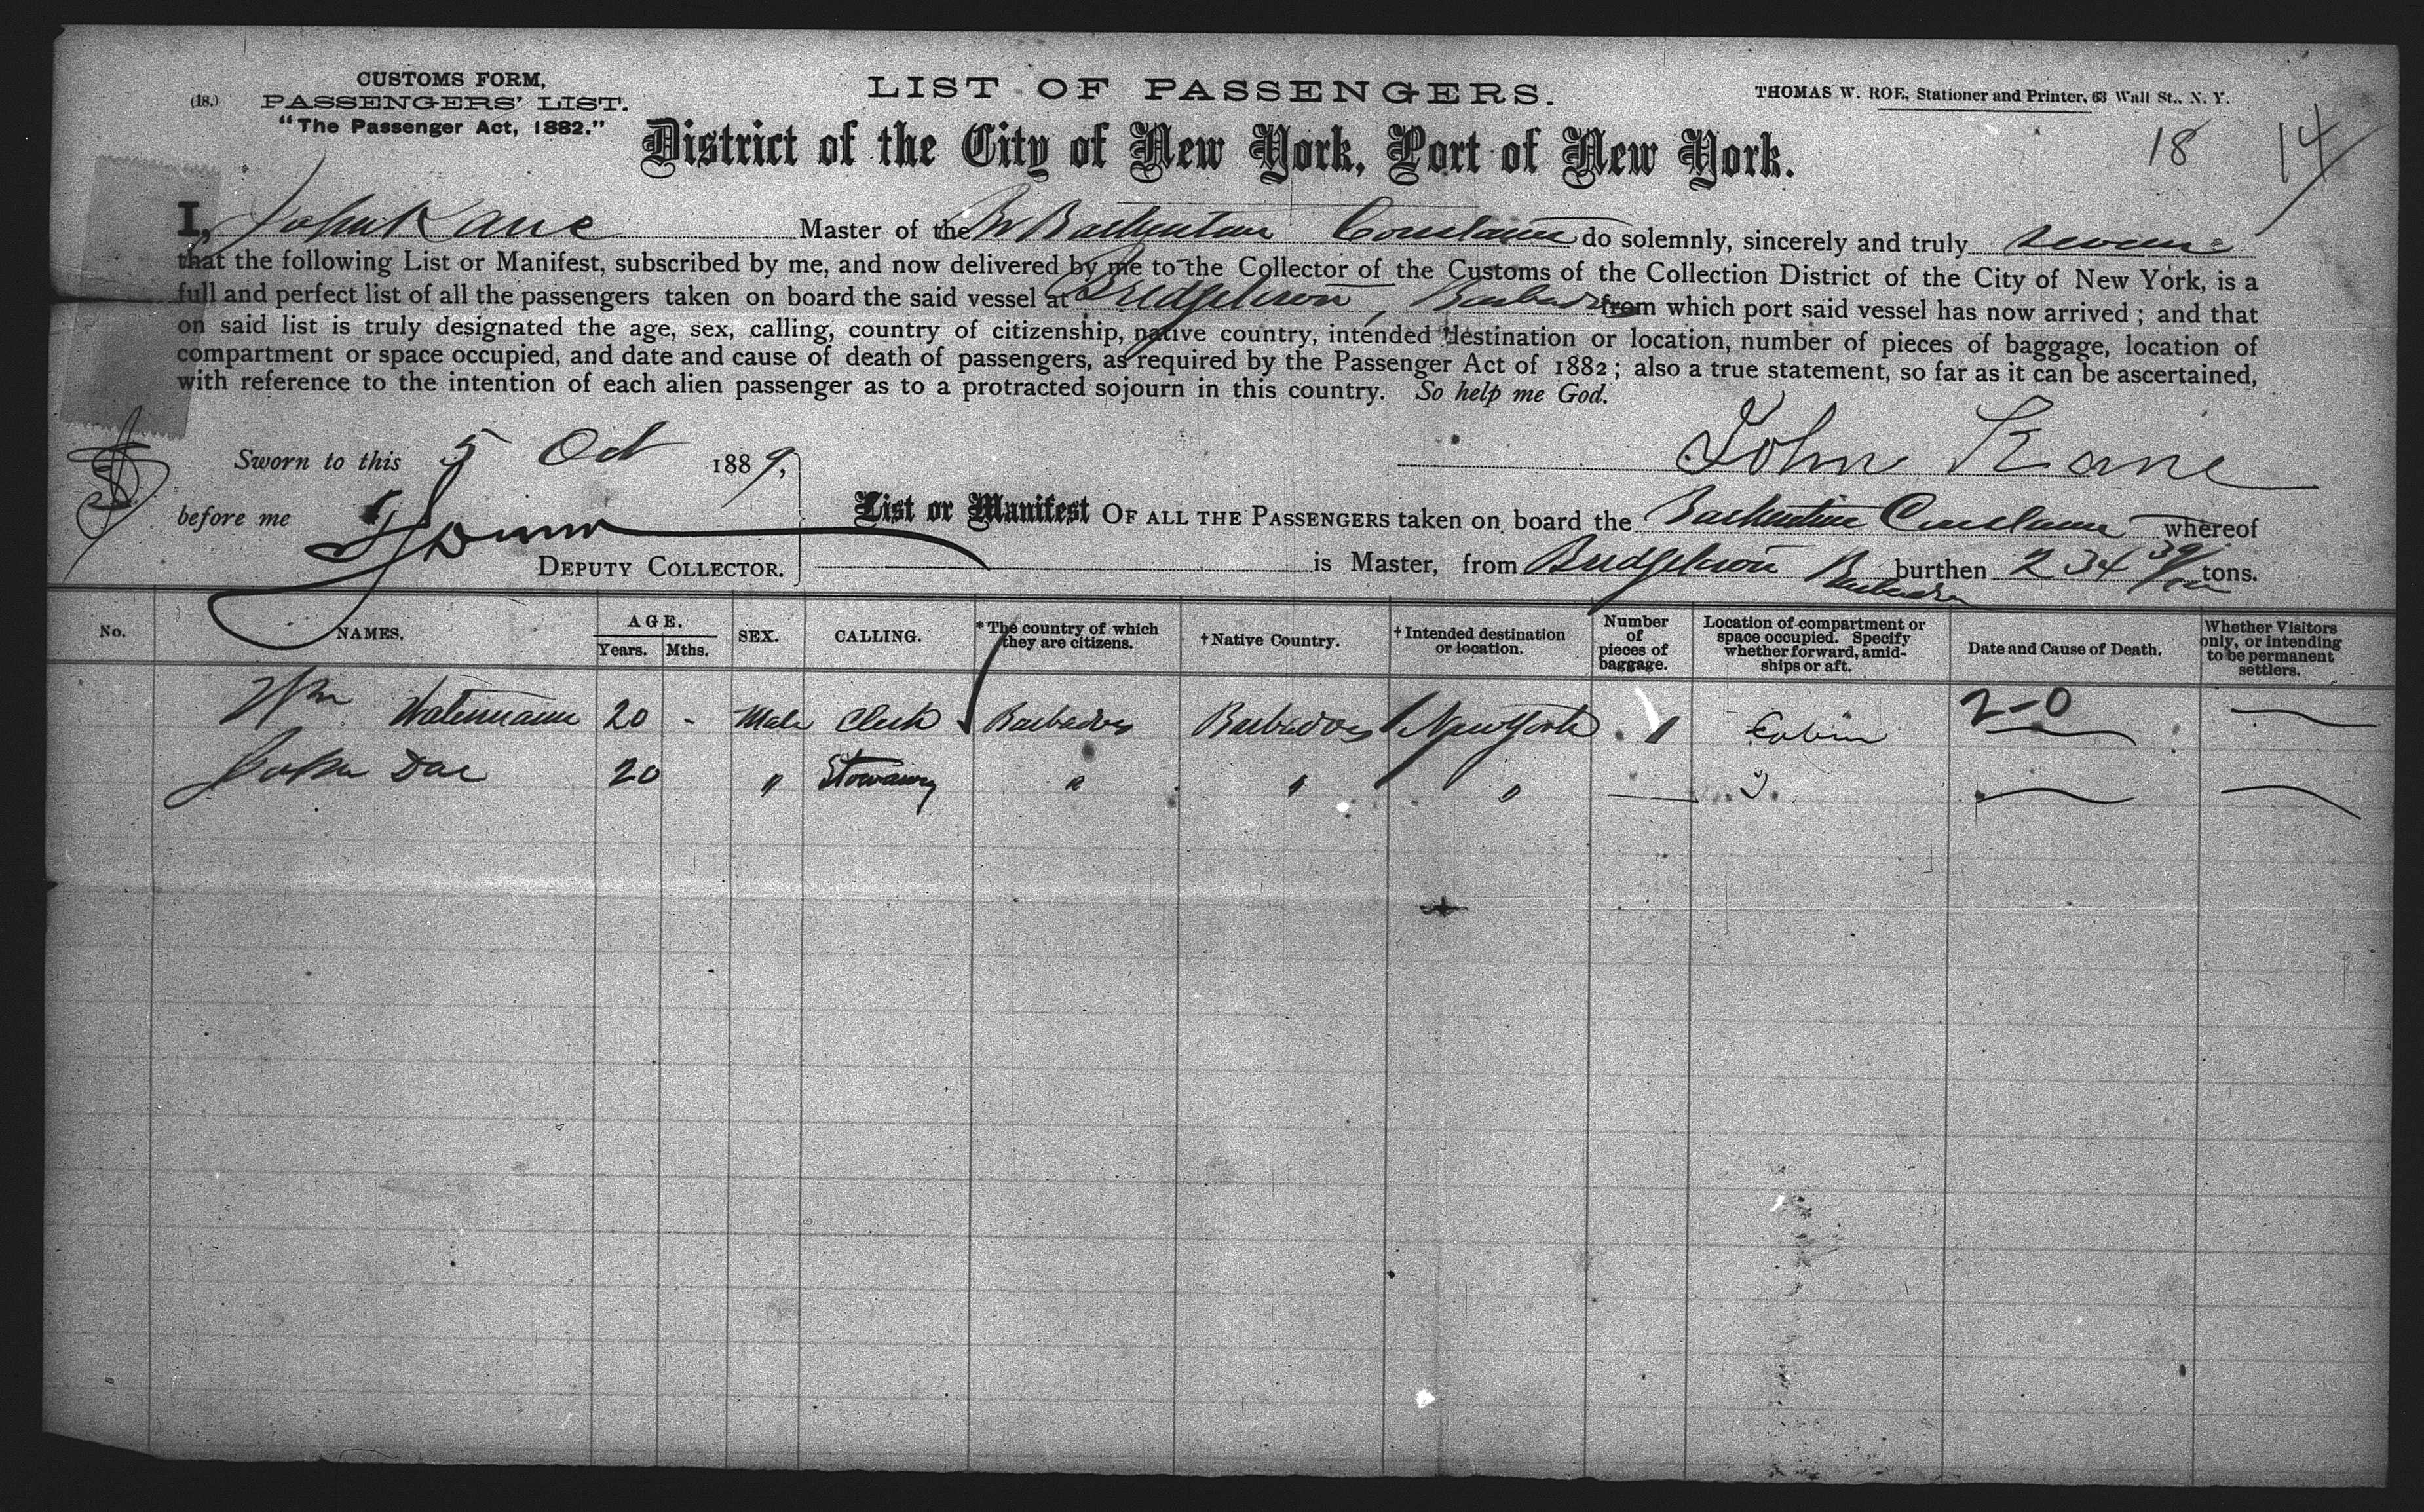 CUSTOMS FORM,
(18.) PASSENGERS' LIST.
"The Passenger Act, 1882."
LIST OF PASSENGERS.
THOMAS W. ROE, Stationer and Printer, 63 Wall St., N. Y.
District of the City of New York, Port of New York.
18 14
I, John Kane Master of the Br Barkentine do solemnly, sincerely and truly
that the following List or Manifest, subscribed by me, and now delivered by me to the Collector of the Customs of the Collection District of the City of New York, is a
full and perfect list of all the passengers taken on board the said vessel at Bridgetown, Barbados from which port said vessel has now arrived; and that
on said list is truly designated the age, sex, calling, country of citizenship, native country, intended destination or location, number of pieces of baggage, location of
compartment or space occupied, and date and cause of death of passengers, as required by the Passenger Act of 1882; also a true statement, so far as it can be ascertained,
with reference to the intention of each alien passenger as to a protracted sojourn in this country. So help me God.
Sworn to this 5 Oct 1889,
John Kane
before me
DEPUTY COLLECTOR.
List or Manifest OF ALL THE PASSENGERS taken on board the Barkentine whereof
is Master, from Bridgetown Barbados burthen 234 39/100 tons.
No. NAMES. AGE. Years. Mths. SEX. CALLING. *The country of which they are citizens. †Native Country. †Intended destination or location. Number of pieces of baggage. Location of compartment or space occupied. Specify whether forward, amidships or aft. Date and Cause of Death. Whether Visitors only, or intending to be permanent settlers.
Wm Watermann 20 - Male Clerk Barbados Barbados New York 1 Cabin 2-0
John Dae 20 " Stowaway " " "